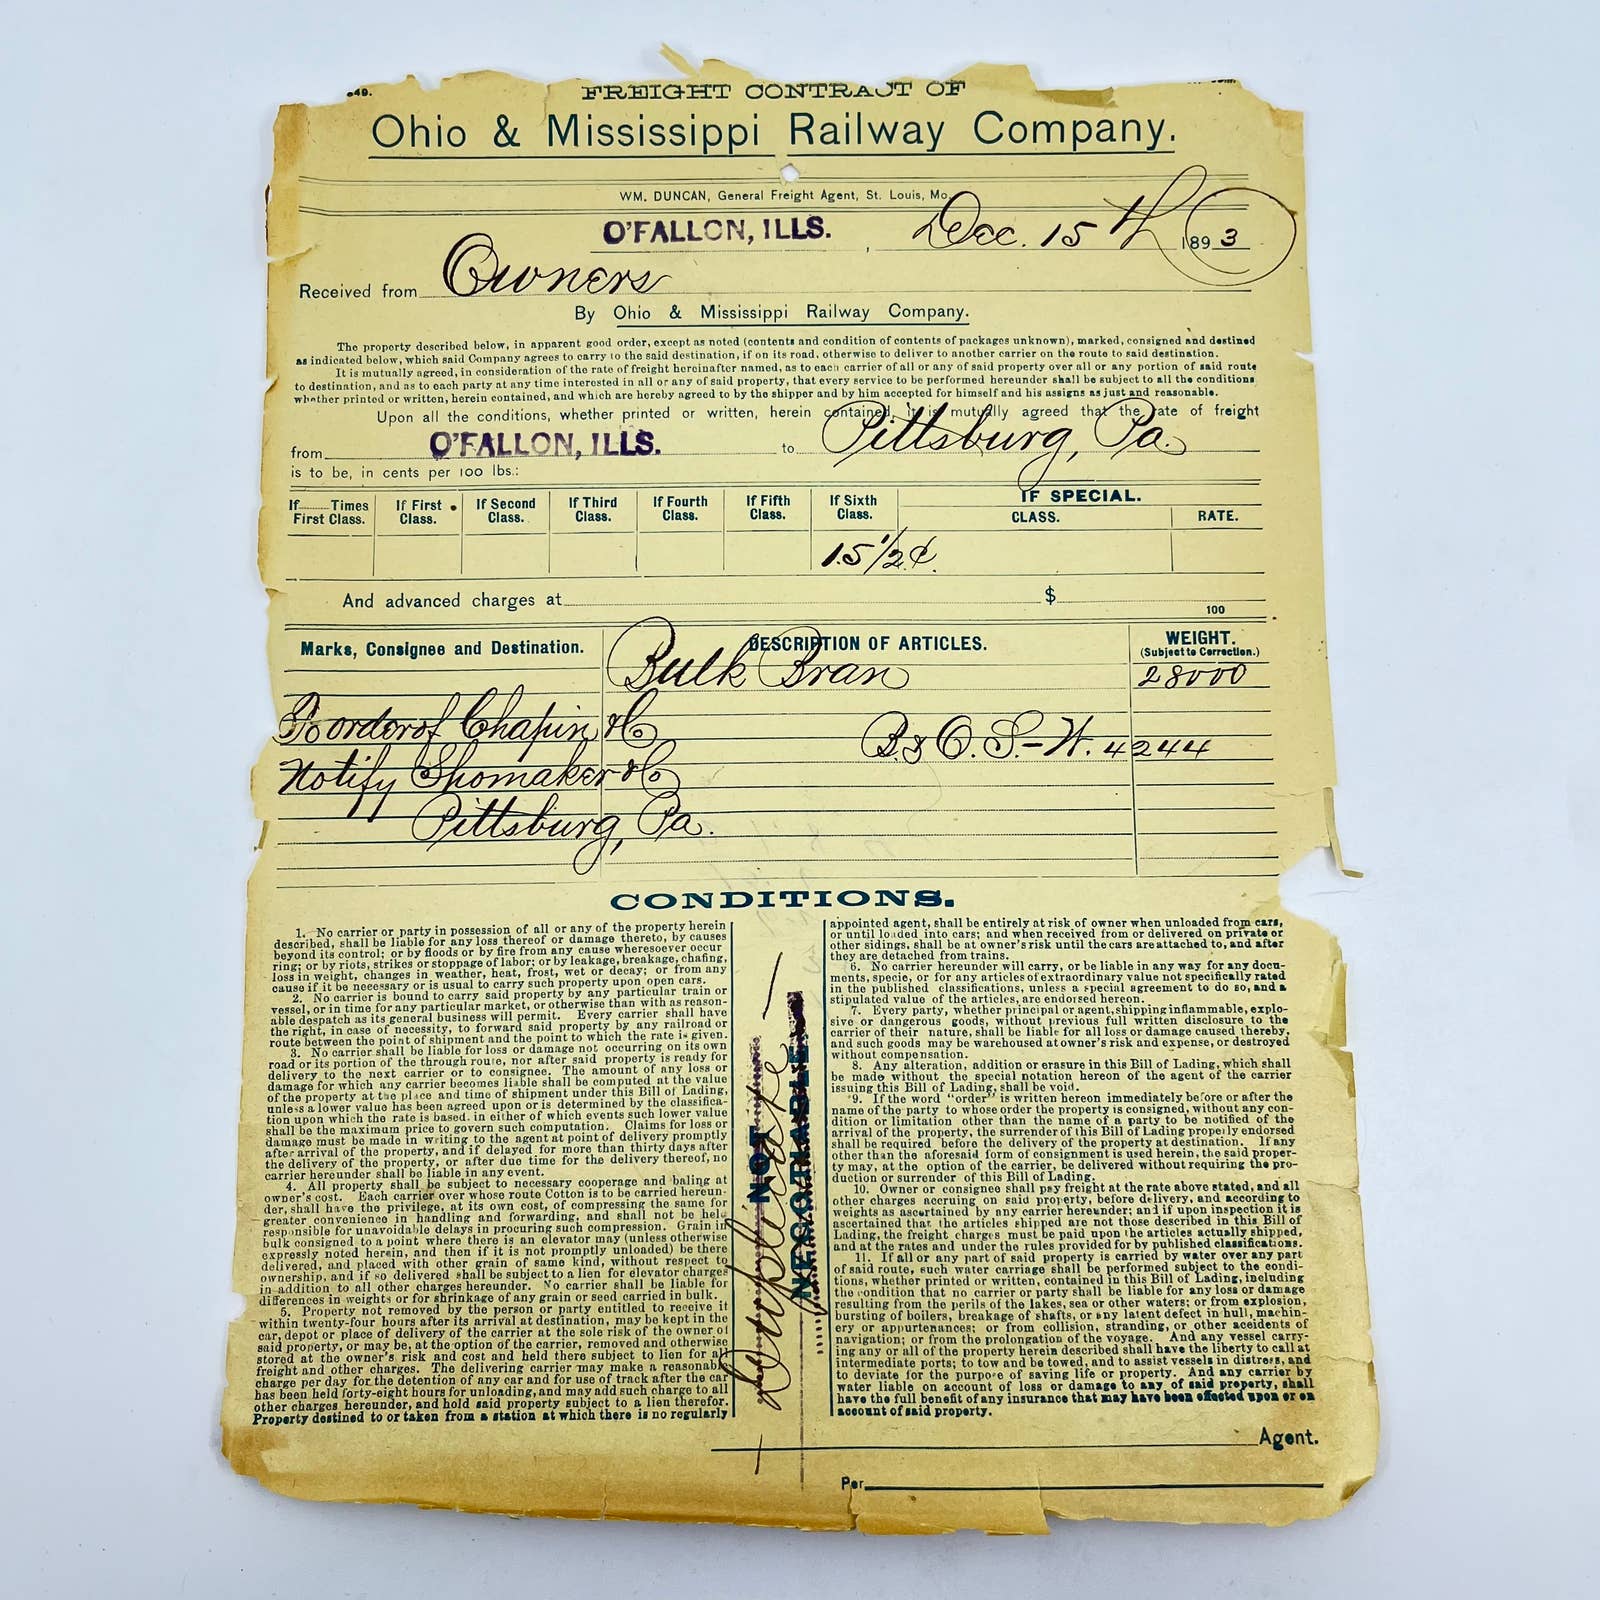 FREIGHT CONTRACT OF
Ohio & Mississippi Railway Company.
WM. DUNCAN, General Freight Agent, St. Louis, Mo.
O'FALLON, ILLS. , Dec. 15th 1893
Received from Owners
By Ohio & Mississippi Railway Company.
The property described below, in apparent good order, except as noted (contents and condition of contents of packages unknown), marked, consigned and destined
as indicated below, which said Company agrees to carry to the said destination, if on its road, otherwise to deliver to another carrier on the route to said destination.
It is mutually agreed, in consideration of the rate of freight hereinafter named, as to each carrier of all or any of said property over all or any portion of said route
to destination, and as to each party at any time interested in all or any of said property, that every service to be performed hereunder shall be subject to all the conditions,
whether printed or written, herein contained, and which are hereby agreed to by the shipper and by him accepted for himself and his assigns as just and reasonable.
Upon all the conditions, whether printed or written, herein contained, it is mutually agreed that the rate of freight
from O'FALLON, ILLS. to Pittsburg, Pa.
is to be, in cents per 100 lbs.:
If Times First Class. If First Class. If Second Class. If Third Class. If Fourth Class. If Fifth Class. If Sixth Class. IF SPECIAL.
CLASS. RATE.
15 1/2 ¢.
And advanced charges at $ 100
Marks, Consignee and Destination. DESCRIPTION OF ARTICLES. WEIGHT.
(Subject to Correction.)
Bulk Bran 28000
To order of Chapin & Co
B. & O. S-W. 4244
Notify Shomaker & Co
Pittsburg, Pa.
CONDITIONS.
1. No carrier or party in possession of all or any of the property herein
described, shall be liable for any loss thereof or damage thereto, by causes
beyond its control; or by floods or by fire from any cause wheresoever occur
ring; or by riots, strikes or stoppage of labor; or by leakage, breakage, chafing,
loss in weight, changes in weather, heat, frost, wet or decay; or from any
cause if it be necessary or is usual to carry such property upon open cars.
2. No carrier is bound to carry said property by any particular train or
vessel, or in time for any particular market, or otherwise than with as reason-
able despatch as its general business will permit. Every carrier shall have
the right, in case of necessity, to forward said property by any railroad or
route between the point of shipment and the point to which the rate is given.
3. No carrier shall be liable for loss or damage not occurring on its own
road or its portion of the through route, nor after said property is ready for
delivery to the next carrier or to consignee. The amount of any loss or
damage for which any carrier becomes liable shall be computed at the value
of the property at the place and time of shipment under this Bill of Lading,
unless a lower value has been agreed upon or is determined by the classifica-
tion upon which the rate is based, in either of which events such lower value
shall be the maximum price to govern such computation. Claims for loss or
damage must be made in writing to the agent at point of delivery promptly
after arrival of the property, and if delayed for more than thirty days after
the delivery of the property, or after due time for the delivery thereof, no
carrier hereunder shall be liable in any event.
4. All property shall be subject to necessary cooperage and baling at
owner's cost. Each carrier over whose route Cotton is to be carried hereun-
der, shall have the privilege, at its own cost, of compressing the same for
greater convenience in handling and forwarding, and shall not be held
responsible for unavoidable delays in procuring such compression. Grain in
bulk consigned to a point where there is an elevator may (unless otherwise
expressly noted herein, and then if it is not promptly unloaded) be there
delivered, and placed with other grain of same kind, without respect to
ownership, and if so delivered shall be subject to a lien for elevator charges
in addition to all other charges hereunder. No carrier shall be liable for
differences in weights or for shrinkage of any grain or seed carried in bulk.
5. Property not removed by the person or party entitled to receive it
within twenty-four hours after its arrival at destination, may be kept in the
car, depot or place of delivery of the carrier at the sole risk of the owner of
said property, or may be, at the option of the carrier, removed and otherwise
stored at the owner's risk and cost and held there subject to lien for all
freight and other charges. The delivering carrier may make a reasonable
charge per day for the detention of any car and for use of track after the car
has been held forty-eight hours for unloading, and may add such charge to all
other charges hereunder, and hold said property subject to a lien therefor.
Property destined to or taken from a station at which there is no regularly
NOT
NEGOTIABLE
Duplicate
appointed agent, shall be entirely at risk of owner when unloaded from cars,
or until loaded into cars; and when received from or delivered on private or
other sidings, shall be at owner's risk until the cars are attached to, and after
they are detached from trains.
6. No carrier hereunder will carry, or be liable in any way for any docu-
ments, specie, or for any articles of extraordinary value not specifically rated
in the published classifications, unless a special agreement to do so, and a
stipulated value of the articles, are endorsed hereon.
7. Every party, whether principal or agent, shipping inflammable, explo-
sive or dangerous goods, without previous full written disclosure to the
carrier of their nature, shall be liable for all loss or damage caused thereby,
and such goods may be warehoused at owner's risk and expense, or destroyed
without compensation.
8. Any alteration, addition or erasure in this Bill of Lading, which shall
be made without the special notation hereon of the agent of the carrier
issuing this Bill of Lading, shall be void.
9. If the word "order" is written hereon immediately before or after the
name of the party to whose order the property is consigned, without any con-
dition or limitation other than the name of a party to be notified of the
arrival of the property, the surrender of this Bill of Lading properly endorsed
shall be required before the delivery of the property at destination. If any
other than the aforesaid form of consignment is used herein, the said proper-
ty may, at the option of the carrier, be delivered without requiring the pro-
duction or surrender of this Bill of Lading.
10. Owner or consignee shall pay freight at the rate above stated, and all
other charges accruing on said property, before delivery, and according to
weights as ascertained by any carrier hereunder; and if upon inspection it is
ascertained that the articles shipped are not those described in this Bill of
Lading, the freight charges must be paid upon the articles actually shipped,
and at the rates and under the rules provided for by published classifications.
11. If all or any part of said property is carried by water over any part
of said route, such water carriage shall be performed subject to the condi-
tions, whether printed or written, contained in this Bill of Lading, including
the condition that no carrier or party shall be liable for any loss or damage
resulting from the perils of the lakes, sea or other waters; or from explosion,
bursting of boilers, breakage of shafts, or any latent defect in hull, machin-
ery or appurtenances; or from collision, stranding, or other accidents of
navigation; or from the prolongation of the voyage. And any vessel carry-
ing any or all of the property herein described shall have the liberty to call at
intermediate ports; to tow and be towed, and to assist vessels in distress, and
to deviate for the purpose of saving life or property. And any carrier by
water liable on account of loss or damage to any of said property, shall
have the full benefit of any insurance that may have been effected upon or on
account of said property.
Agent.
Per